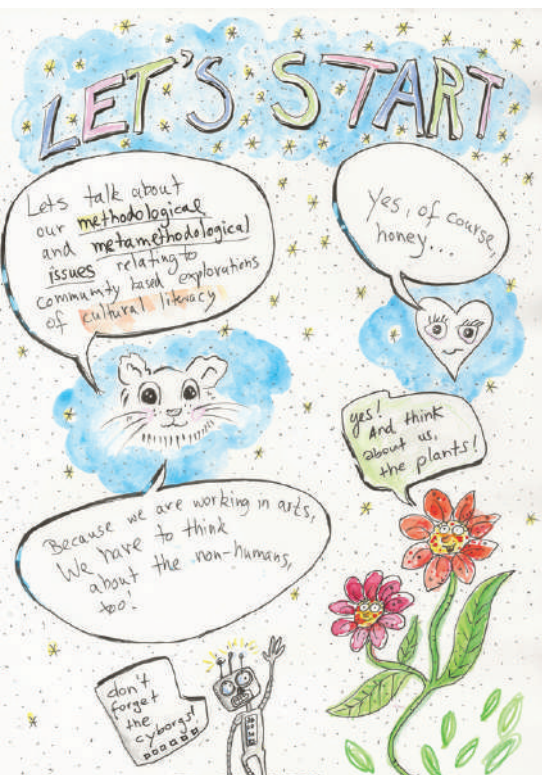 LET'S START
Lets talk about
our methodological
and metamethodological
issues relating to
community based explorations
of cultural literacy
Yes, of course
honey...
yes!
And think
about us,
the plants!
Because we are working in arts,
We have to think
about the non-humans,
too!
don't
forget
the
cyborgs!